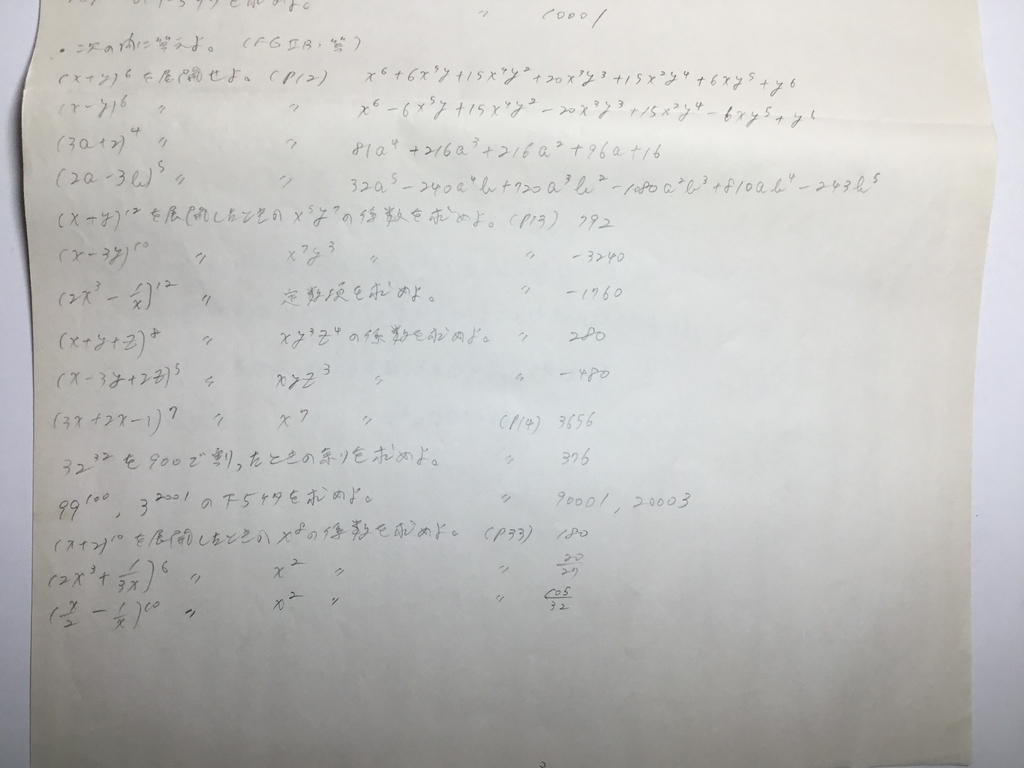 を求めよ。 〃 10001
・次の問に答えよ。(FGⅡB・答)
(x+y)^6を展開せよ。(P12) x^6+6x^5y+15x^4y^2+20x^3y^3+15x^2y^4+6xy^5+y^6
(x-y)^6 〃 〃 x^6-6x^5y+15x^4y^2-20x^3y^3+15x^2y^4-6xy^5+y^6
(3a+2)^4 〃 〃 81a^4+216a^3+216a^2+96a+16
(2a-3b)^5 〃 〃 32a^5-240a^4b+720a^3b^2-1080a^2b^3+810ab^4-243b^5
(x+y)^12を展開したときのx^5y^7の係数を求めよ。(P13) 792
(x-3y)^10 〃 x^7y^3 〃 〃 -3240
(2x^3-1/x)^12 〃 定数項を求めよ。 〃 -1760
(x+y+z)^8 〃 xy^3z^4の係数を求めよ。 〃 280
(x-3y+2z)^5 〃 xyz^3 〃 〃 -480
(3x+2x-1)^7 〃 x^7 〃 (P14) 3656
32^32を900で割ったときの余りを求めよ。 〃 376
99^100, 3^2001の下5ケタを求めよ。 〃 90001, 20003
(x+2)^10を展開したときのx^8の係数を求めよ。(P33) 180
(2x^3+1/3x)^6 〃 x^2 〃 〃 20/27
(x/2-1/x)^10 〃 x^2 〃 〃 105/32